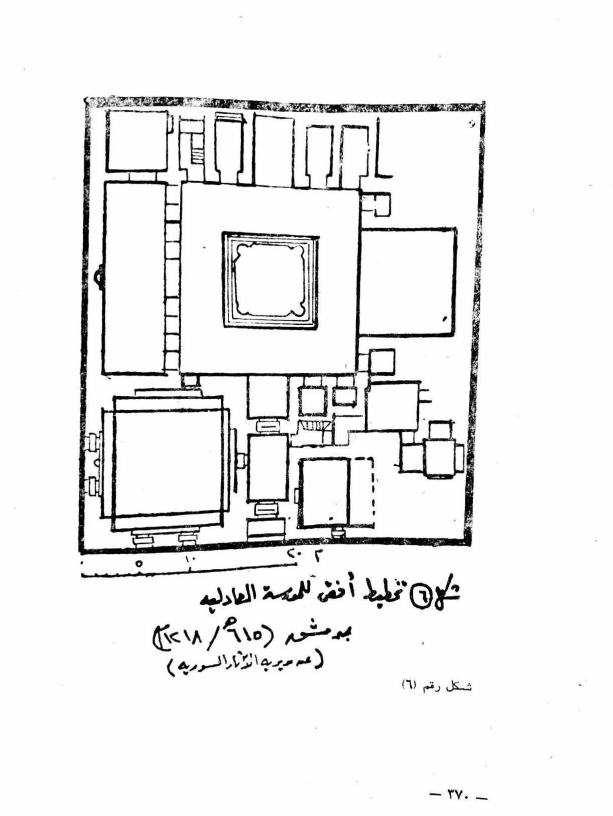 ٥ ١٠ ٢٠ م
شكل ٦ تخطيط أفقى للمدرسة العادلية
بدمشق (٦١٥ ه / ١٢١٨ م)
(عن مديرية الآثار السورية)
شكل رقم (٦)
— ٣٧٠ —